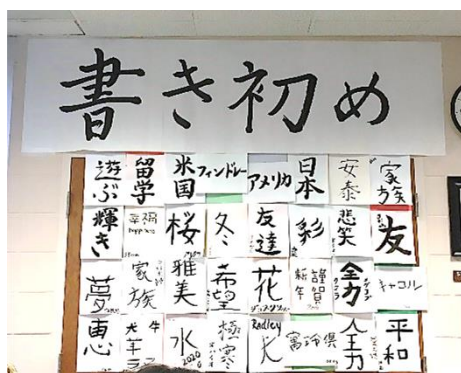 書き初め
遊ぶ 留学 米国 フィンドレー アメリカ 日本 安泰 家族
輝き 幸福 桜 冬 友達 彩 悲笑 友
夢 家族 雅美 希望 花 謹賀新年 全力 キャロル
恵 水 2020 極寒 Radley 平和